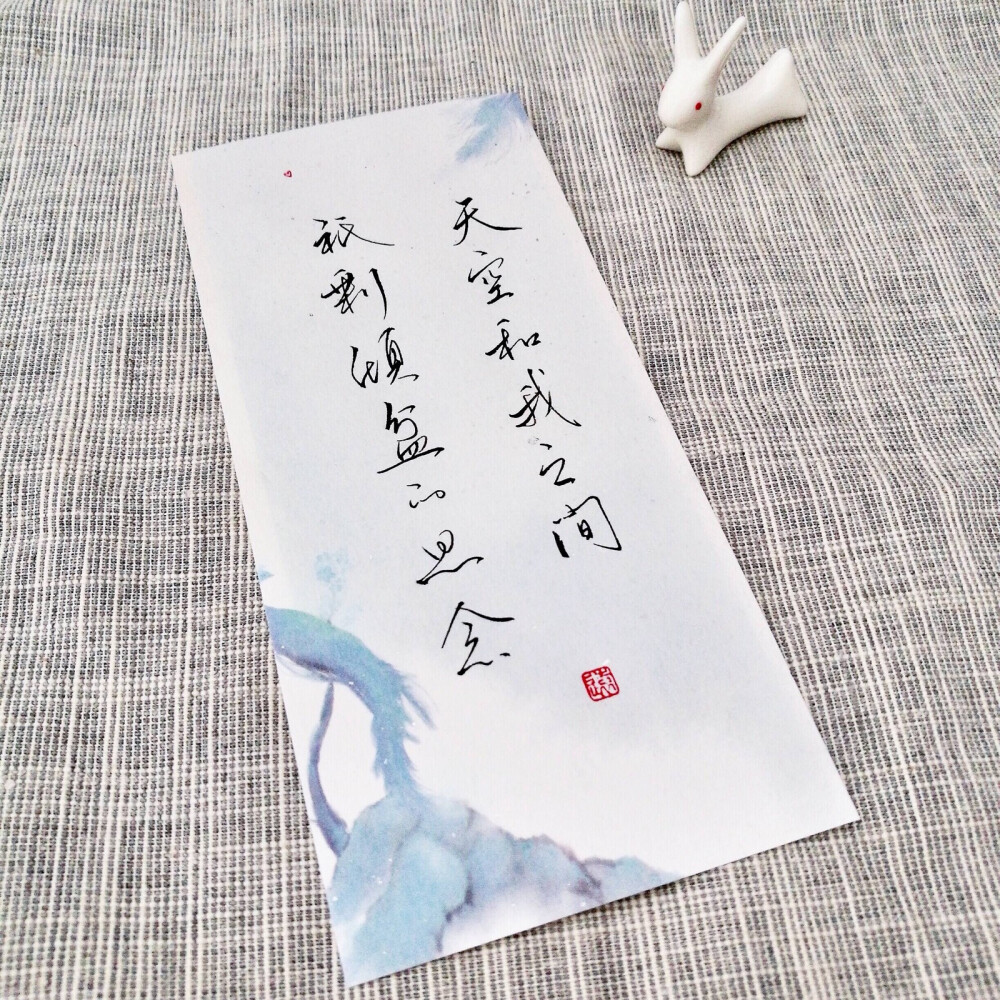 天空和我之间
祗剩倾盆的思念